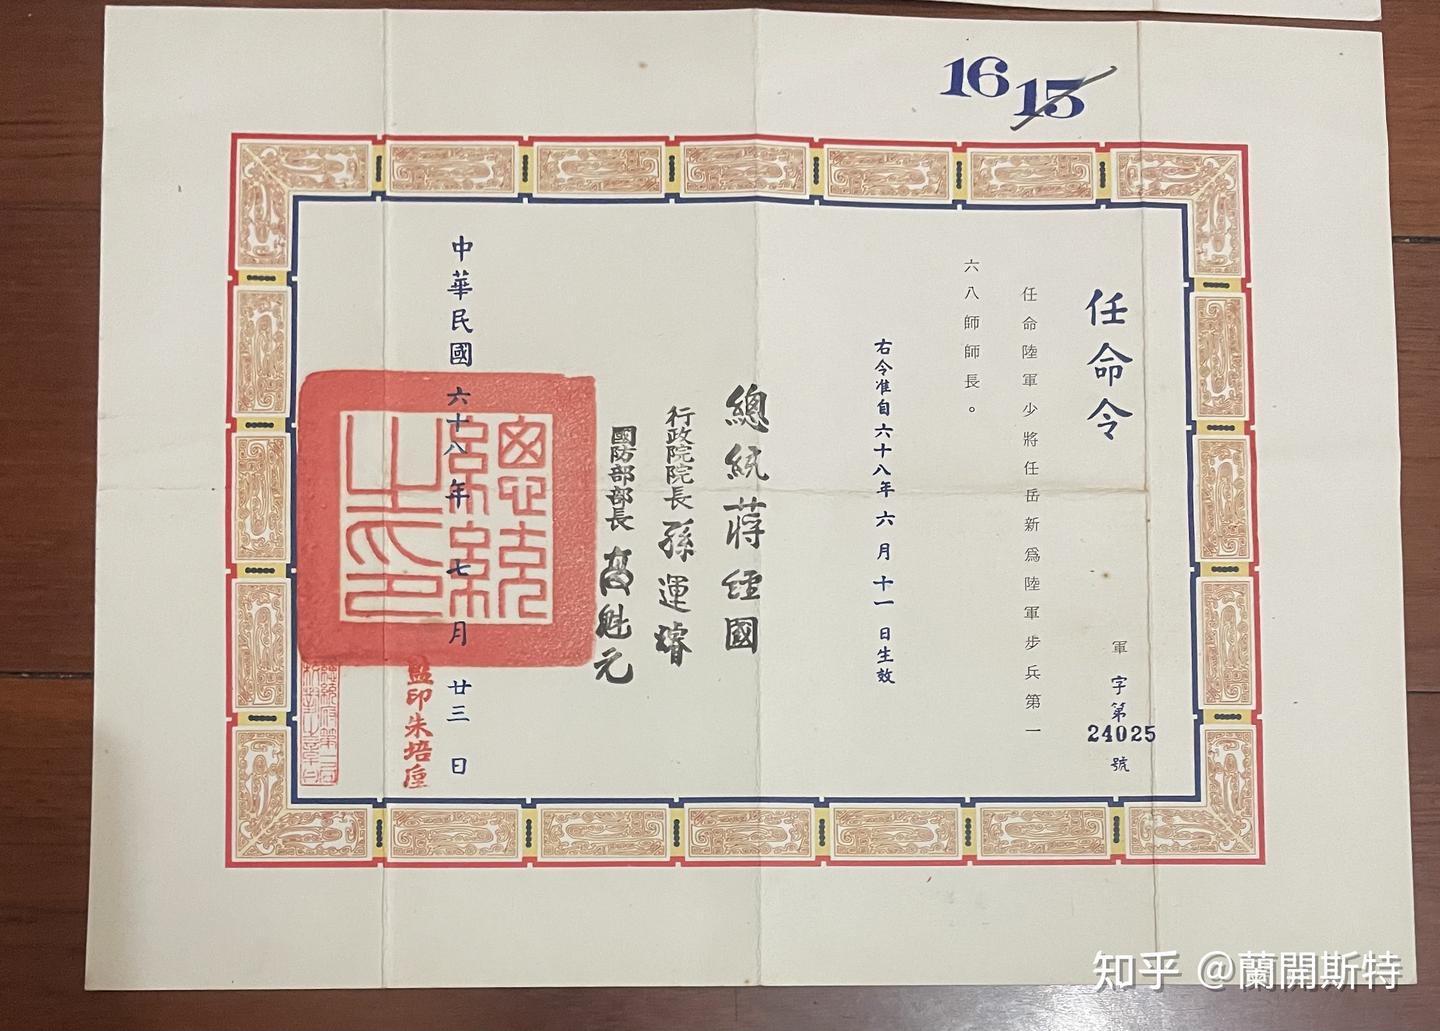 16 15
任命令
軍字第24025號
任命陸軍少將任岳新為陸軍步兵第一
六八師師長。
右令准自六十八年六月十一日生效
總統蔣經國
行政院院長孫運璿
國防部部長高魁元
中華民國六十八年七月廿三日
總統之印
監印朱培垕
知乎 @蘭開斯特